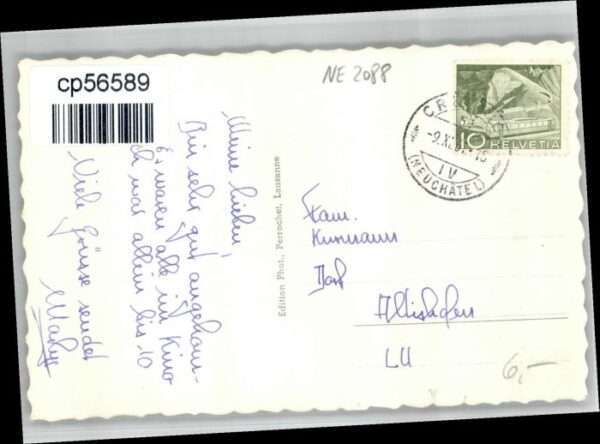 cp56589
NE 2088
Meine lieben,
Bin sehr gut angekom-
Es waren alle im Kino
ich war allein bis 10
Viele Grüsse sendet
Edition Phot., Perrochet, Lausanne
10 HELVETIA
IV
(NEUCHÂTEL)
Fam.
Kunmann
Dorf
Altishofen
LU
6,-